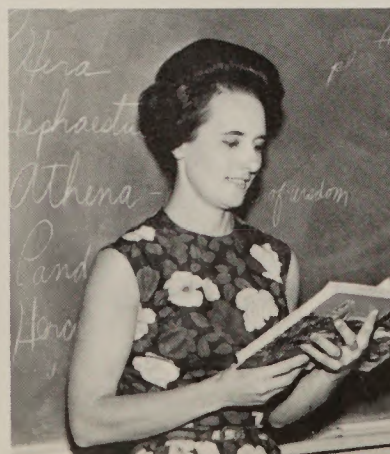 Hera
Hephaestu
Athena - of wisdom
Pand
Hera